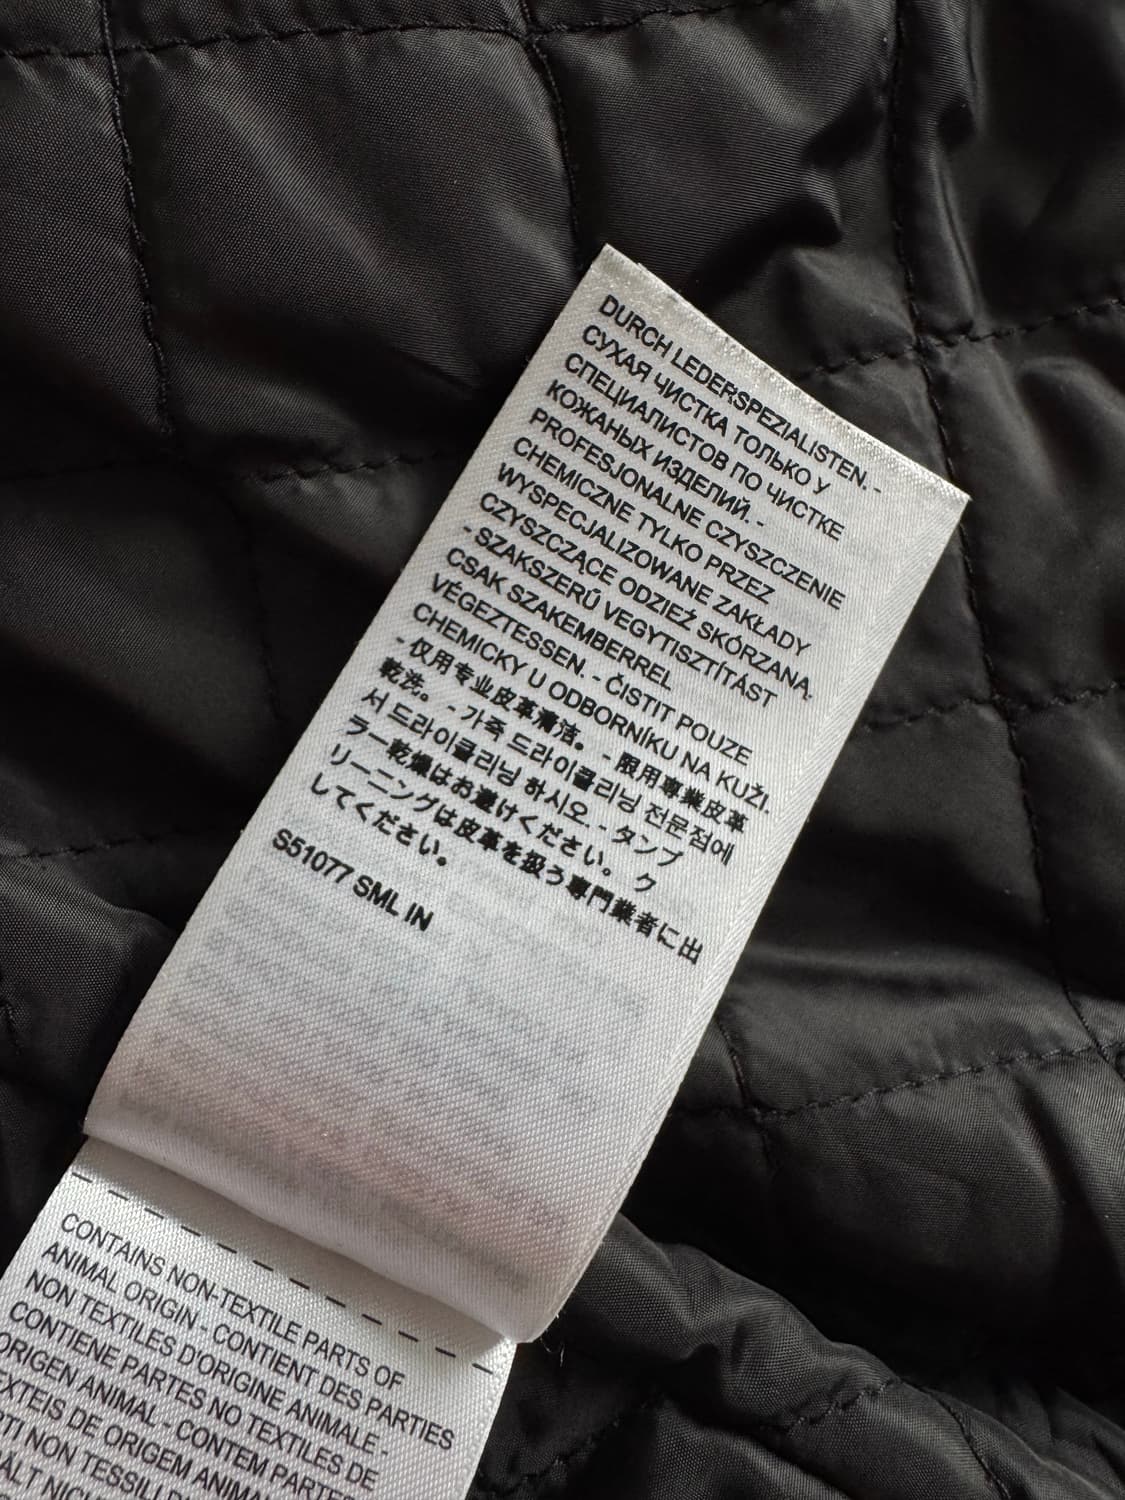 DURCH LEDERSPEZIALISTEN. -
СУХАЯ ЧИСТКА ТОЛЬКО У
СПЕЦИАЛИСТОВ ПО ЧИСТКЕ
КОЖАНЫХ ИЗДЕЛИЙ. -
PROFESJONALNE CZYSZCZENIE
CHEMICZNE TYLKO PRZEZ
WYSPECJALIZOWANE ZAKŁADY
CZYSZCZĄCE ODZIEŻ SKÓRZANĄ.
- SZAKSZERŰ VEGYTISZTÍTÁST
CSAK SZAKEMBERREL
VÉGEZTESSEN. - ČISTIT POUZE
CHEMICKY U ODBORNÍKU NA KUŽI.
- 仅用专业皮革清洁。 - 限用專業皮革
乾洗。 - 가죽 드라이클리닝 전문점에
서 드라이클리닝 하시오 - タンブ
ラー乾燥はお避けください。ク
リーニングは皮革を扱う専門業者に出
してください。
S51077 SML IN
CONTAINS NON-TEXTILE PARTS OF
ANIMAL ORIGIN - CONTIENT DES PARTIES
NON TEXTILES D'ORIGINE ANIMALE -
CONTIENE PARTES NO TEXTILES DE
ORIGEN ANIMAL - CONTEM PARTES
TEIS DE ORIGEM ANIMAL
NON TESSILI